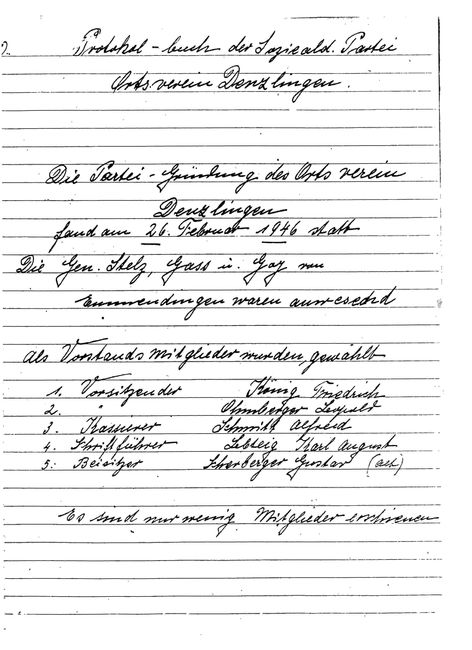 Protokol - buch der Soziald. Partei
Ortsverein Denzlingen.
Die Partei - Gründung des Orts verein
Denzlingen
fand am 26. Februar 1946 statt
Die Gen. Stelz, Gass u. Gaz von
Emmendingen waren anwesend
als Vorstandsmitglieder wurden gewählt
1. Vorsitzender König Friedrich
2. " Ohmberger Leopold
3. Kassierer Schmitt Alfred
4. Schriftführer Karl August
5. Beisitzer Scherberger Gustav (alt)
Es sind nur wenig Mitglieder erschienen